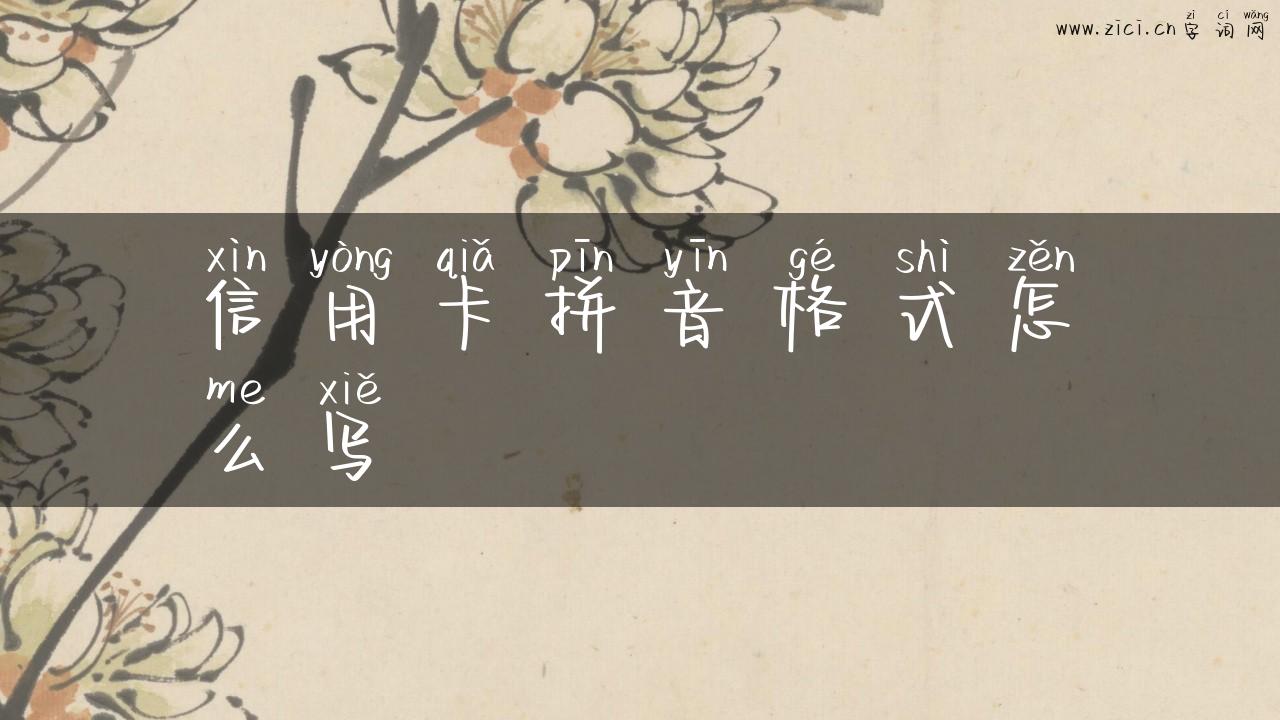 www.zici.cn 字词网
zì cí wǎng
xìn yòng qiǎ pīn yīn gé shì zěn
信用卡拼音格式怎
me xiě
么写